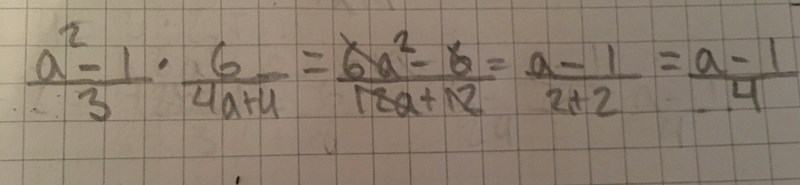 a² - 1 / 3 · 6 / 4a+4 = 6a² - 6 / 12a+12 = a - 1 / 2+2 = a - 1 / 4